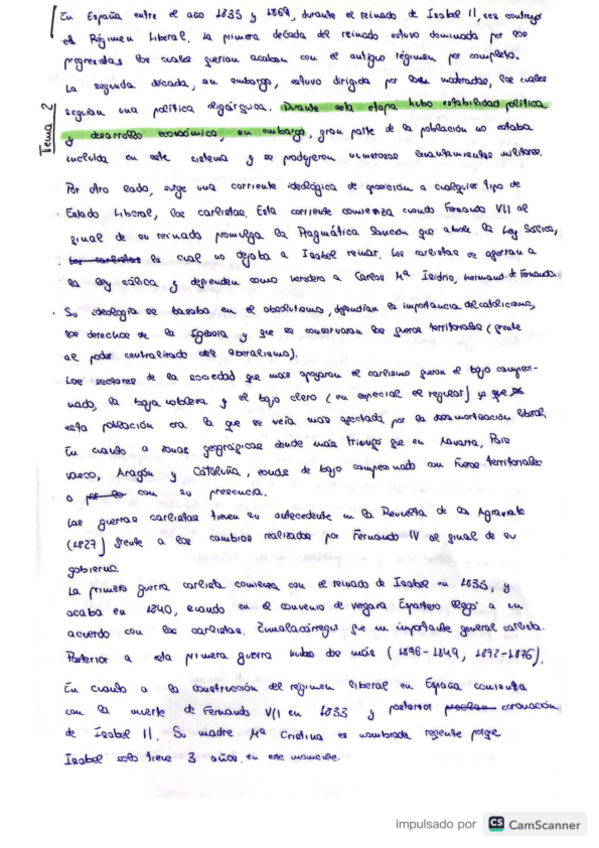 Tema 2
En España entre el año 1833 y 1869, durante el reinado de Isabel II, se construyó
el Régimen Liberal. La primera década del reinado estuvo dominada por los
progresistas los cuales querian acaban con el antiguo régimen por completo.
La segunda década, sin embargo, estuvo dirigida por los moderados, los cuales
seguian una política oligárquica. Durante esta etapa hubo estabilidad política
y desarrollo económico, sin embargo, gran parte de la población no estaba
incluida en este sistema y se produjeron numerosos levantamientos militares.
Por otro lado, surge una corriente ideológica de oposición a cualquier tipo de
Estado Liberal, los carlistas. Esta corriente comienza cuando Fernando VII al
final de su reinado promulga la Pragmática Sanción que abole la Ley Sálica,
los carlistas la cual no dejaba a Isabel reinar. Los carlistas se aferran a
la ley sálica y defienden como heredero a Carlos Mª Isidrio, hermano de Fernando
Su ideología se basaba en el absolutismo, defendian la importancia del catolicismo,
los derechos de la Iglesia y que se conservaran los fueros territoriales (frente
al poder centralizado del liberalismo).
Los sectores de la sociedad que más apoyaron el carlismo fueron el bajo campesi-
nado, la baja nobleza y el bajo clero (en especial el regular) ya que
esta población era la que se veía más afectada por la desamortización liberal.
En cuanto a zonas geográficas donde más triunfó fue en Navarra, País
Vasco, Aragón y Cataluña, zonas de bajo campesinado con fueros territoriales
o por los con su presencia.
Las guerras carlistas tienen su antecedente en la Revuelta de los Agraviats
(1827) frente a los cambios realizados por Fernando IV al final de su
gobierno.
La primera guerra carlista comienza con el reinado de Isabel en 1833, y
acaba en 1840, cuando en el convenio de Vergara Espartero llegó a un
acuerdo con los carlistas. Zumalacárregui fue un importante general carlista.
Posterior a esta primera guerra hubo dos más (1846-1849, 1872-1876).
En cuanto a la construcción del régimen liberal en España comienza
con la muerte de Fernando VII en 1833 y posterior coronación
de Isabel II. Su madre Mª Cristina es nombrada regente porque
Isabel solo tiene 3 años en este momento.
impulsado por CS CamScanner